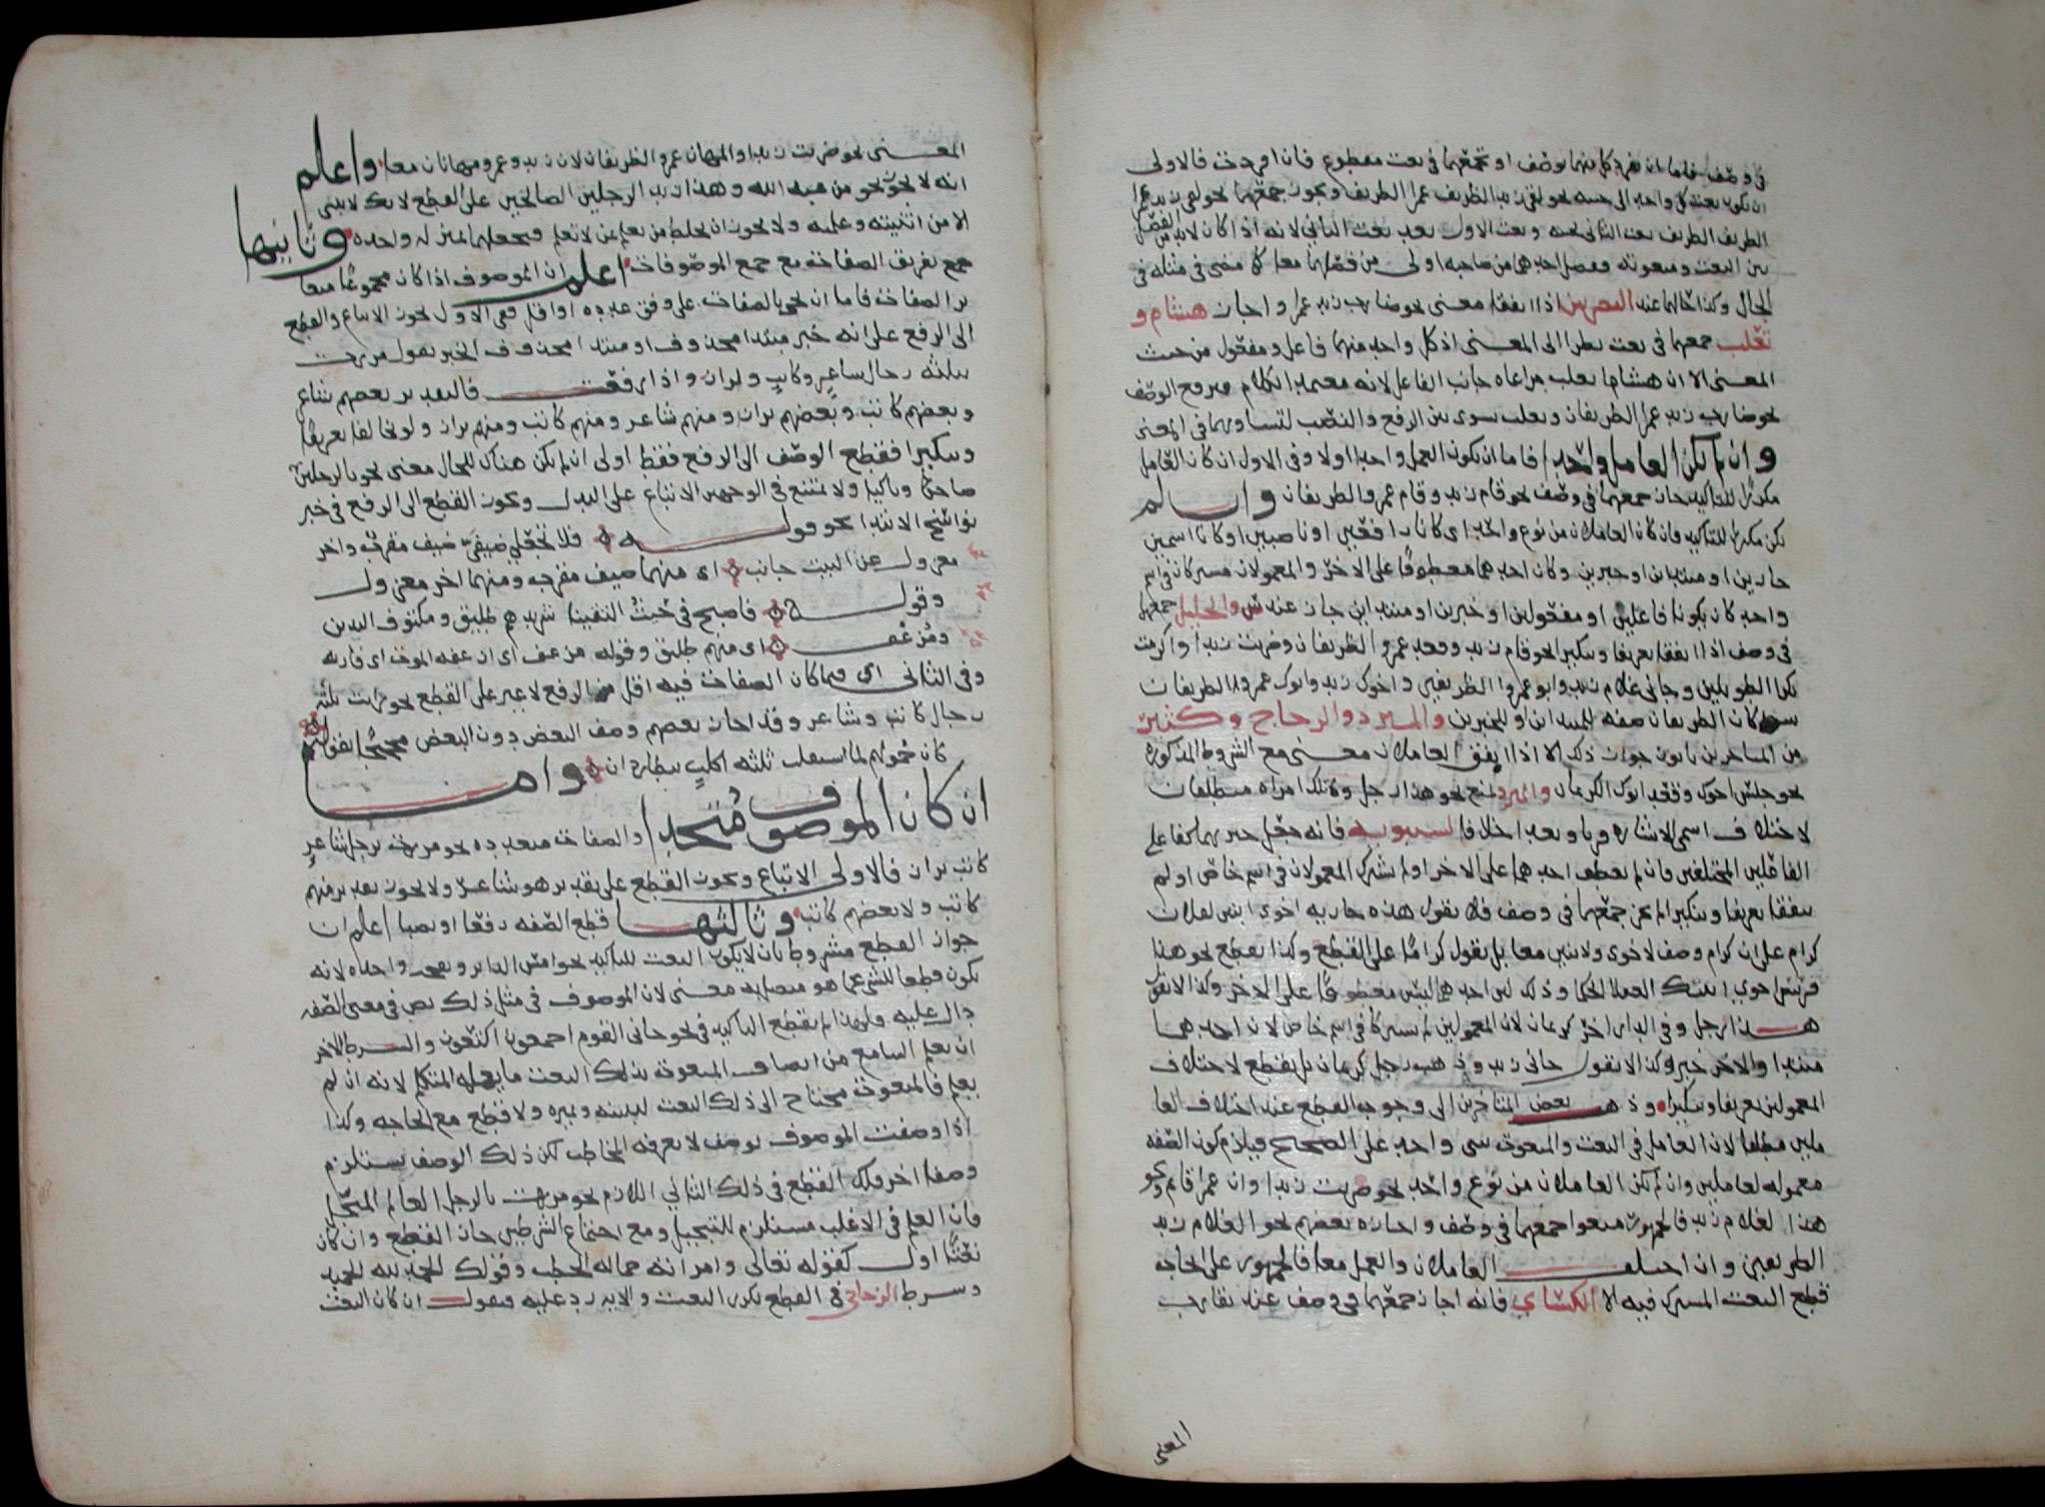 في وصف فاما ان تفرد كل منهما بوصف او تجمعهما في نعت مقطوع فان افردت فالاولى
ان يكون نعت كل واحد الى جنبه نحو لقي زيد الظريف عمرا الظريف ويجوز جمعهما نحو لقي زيد عمرا
الظريف الظريف نعت الثاني بجنبه ونعت الاول بعد نعت الثاني لانه اذا كان لابد من الفصل
بين النعت ومنعوته ففصل احدهما من صاحبه اولى من فصلهما معا كما مضى في مثله في
الحال وكذا حالهما عند البصريين اذا اتفقا معنى نحو ضارب زيد عمرا واجاز هشام و
ثعلب جمعهما في نعت نظرا الى المعنى اذ كل واحد منهما فاعل ومفعول من حيث
المعنى الا ان هشاما يغلب مراعاه جانب الفاعل لانه معتمد الكلام فيرفع الوصف
نحو ضارب زيد عمرا الظريفان وثعلب سوى بين الرفع والنصب لتساويهما في المعنى
وان لم يكن العامل واحدا فاما ان يكون العمل واحدا اولا وفي الاول ان كان العامل
مكررا للتاكيد جاز جمعهما في وصف نحو قام زيد وقام عمرو الظريفان وان لم
يكن مكررا للتاكيد فان كان العاملان من نوع واحد اي كانا رافعين او ناصبين او كانا اسمين
جارين او مبتداين او خبرين وكان احدهما معطوفا على الاخر والمعمولان مشتركان في اسم
واحد كان يكونا فاعلين او مفعولين او خبرين او مبتداين جاز عند س والخليل جمعهما
في وصف اذا اتفقا تعريفا وتنكيرا نحو قام زيد وقعد عمرو الظريفان وضربت زيدا واكرمت
بكرا الطويلين وجاني غلام زيد وابو عمرو الظريفين واخوك زيد وابوك عمرو الظريفان
سواء كان الظريفان صفه للمبتداين او للخبرين والمبرد والزجاج وكثير
من المتاخرين يابون جواز ذلك الا اذا اتفق العاملان معنى مع الشروط المذكوره
نحو جلس اخوك وقعد ابوك الكريمان والمبرد يمنع نحو هذا رجل وتلك امراه منطلقان
لاختلاف اسمي الاشاره قربا وبعدا خلافا لسيبويه فانه جعل خبريهما كفاعلي
الفاعلين المختلفين فان لم يعطف احدهما على الاخر او لم يشترك المعمولان في اسم خاص او لم
يتفقا تعريفا وتنكيرا لم يجز جمعهما في وصف فلا تقول هذه جاريه اخوي ابنين لفلان
كرام على ان كرام وصف لاخوي ولابنين معا بل تقول كراما على القطع وكذا تقطع نحو هذا
فرس اخوي ابنيك العقلا الحكما وذلك لان احدهما ليس معطوفا على الاخر وكذا لا تقول
هذا رجل وفي الدار اخر كريمان لان المعمولين لم يشتركا في اسم خاص لان احدهما
مبتدا والاخر خبر وكذا لا تقول جاني زيد وذهب رجل كريمان بل يقطع لاختلاف
المعمولين تعريفا وتنكيرا وذهب بعض المتاخرين الى وجوب القطع عند اختلاف العا
ملين مطلقا لان العامل في النعت والمنعوت شي واحد على الصحيح فيلزم كون الصفه
معموله لعاملين وان لم يكن العاملان من نوع واحد نحو ضربت زيدا وان عمرا قائم ونحو
هذا لغلام زيد فالجمهور منعوا جمعهما في وصف واجازه بعضهم نحو الغلام زيد
الظريفين وان اختلف العاملان والعمل معا فالجمهور على ايجاب
قطع النعت المشترك فيه الا الكسائي فانه اجاز جمعهما في وصف عند تقارب
المعنى
المعنى نحو ضربت زيدا والمهان عمرو الظريفان لان زيد وعمرو مهانان معا واعلم
انه لا يجوز نحو من عبد الله وهذا زيد الرجلين الصالحين على القطع لانك لا تثني
الا من اثبتته وعلمته ولا يجوز ان تخلط من تعلم بمن لا تعلم فتجعلهما بمنزله واحده وثانيها
جمع تفريق الصفات مع جمع الموصوفات اعلم ان الموصوف اذا كان مجموعا متعا
بر الصفات فاما ان تجي بالصفات على وفق عدده او اقل ففي الاول يجوز الاتباع والقطع
الى الرفع على انه خبر مبتدا محذوف او مبتدا محذوف الخبر تقول مررت
بثلثه رجال شاعر وكاتب وبزاز واذا رفعت فالتقدير بعضهم شاعر
وبعضهم كاتب وبعضهم بزاز ومنهم شاعر ومنهم كاتب ومنهم بزاز ولو تخالفا تعريفا
وتنكيرا فقطع الوصف الى الرفع فقط اولى ان لم يكن هناك للحال معنى نحو بالرجلين
ضاحك وباكيا ولا يمتنع في الوجهين الاتباع على البدل ويجوز القطع الى الرفع في خبر
نواسخ الابتدا نحو قوله فلا تجعلي ضيفي ضيف مقرب واخر
معزول عن البيت جانب اي منهما ضيف مقرب ومنهما اخر معزول
وقوله فاصبح في حيث التقينا شريدهم طليق ومكتوف اليدين
ومزعف اي منهم طليق وقوله مزعف اي ازعفه الموت اي قاربه
وفي الثاني اي فيما كان الصفات فيه اقل الرفع لا غير على القطع نحو مررت بثلثه
رجال كاتب وشاعر وقد اجاز بعضهم وصف البعض دون البعض محتجا بقوله
كان حمولهم لما استقلت ثلثه اكلب يتطاردان واما
ان كان الموصوف متحدا والصفات متعدده نحو مررت برجل شاعر
كاتب بزاز فالاولى الاتباع ويجوز القطع على تقدير هو شاعر ولا يجوز تقدير منهم
كاتب ولا بعضهم كاتب وثالثها قطع الصفه رفعا او نصبا اعلم ان
جواز القطع مشروط بان لا يكون النعت للتاكيد نحو امس الدابر ونفخه واحده لانه
يكون قطعا للشي عما هو متصل به معنى لان الموصوف في مثل ذلك نص في معنى الصفه
دال عليه فلهذا لم يقطع التاكيد في نحو جاني القوم اجمعون اكتعون والشرط الاخر
ان يعلم السامع من اتصاف المنعوت بذلك النعت ما يعلمه المتكلم لانه ان لم
يعلم فالمنعوت محتاج الى ذلك النعت ليبينه ويميزه ولا قطع مع الحاجه وكذا
اذا وصفت الموصوف بوصف لا يعرفه المخاطب لكن ذلك الوصف يستلزم
وصفا اخر فلك القطع في ذلك الثاني اللازم نحو مررت بالرجل العالم المبجل
فان العلم في الاغلب مستلزم للتبجيل ومع اجتماع الشرطين جاز القطع وان كان
نعتا اول كقوله تعالى وامراته حماله الحطب وقولك الحمد لله الحميد
وشرط الزجاجي في القطع تكرر النعت والايه رد عليه فتقول ان كان النعت